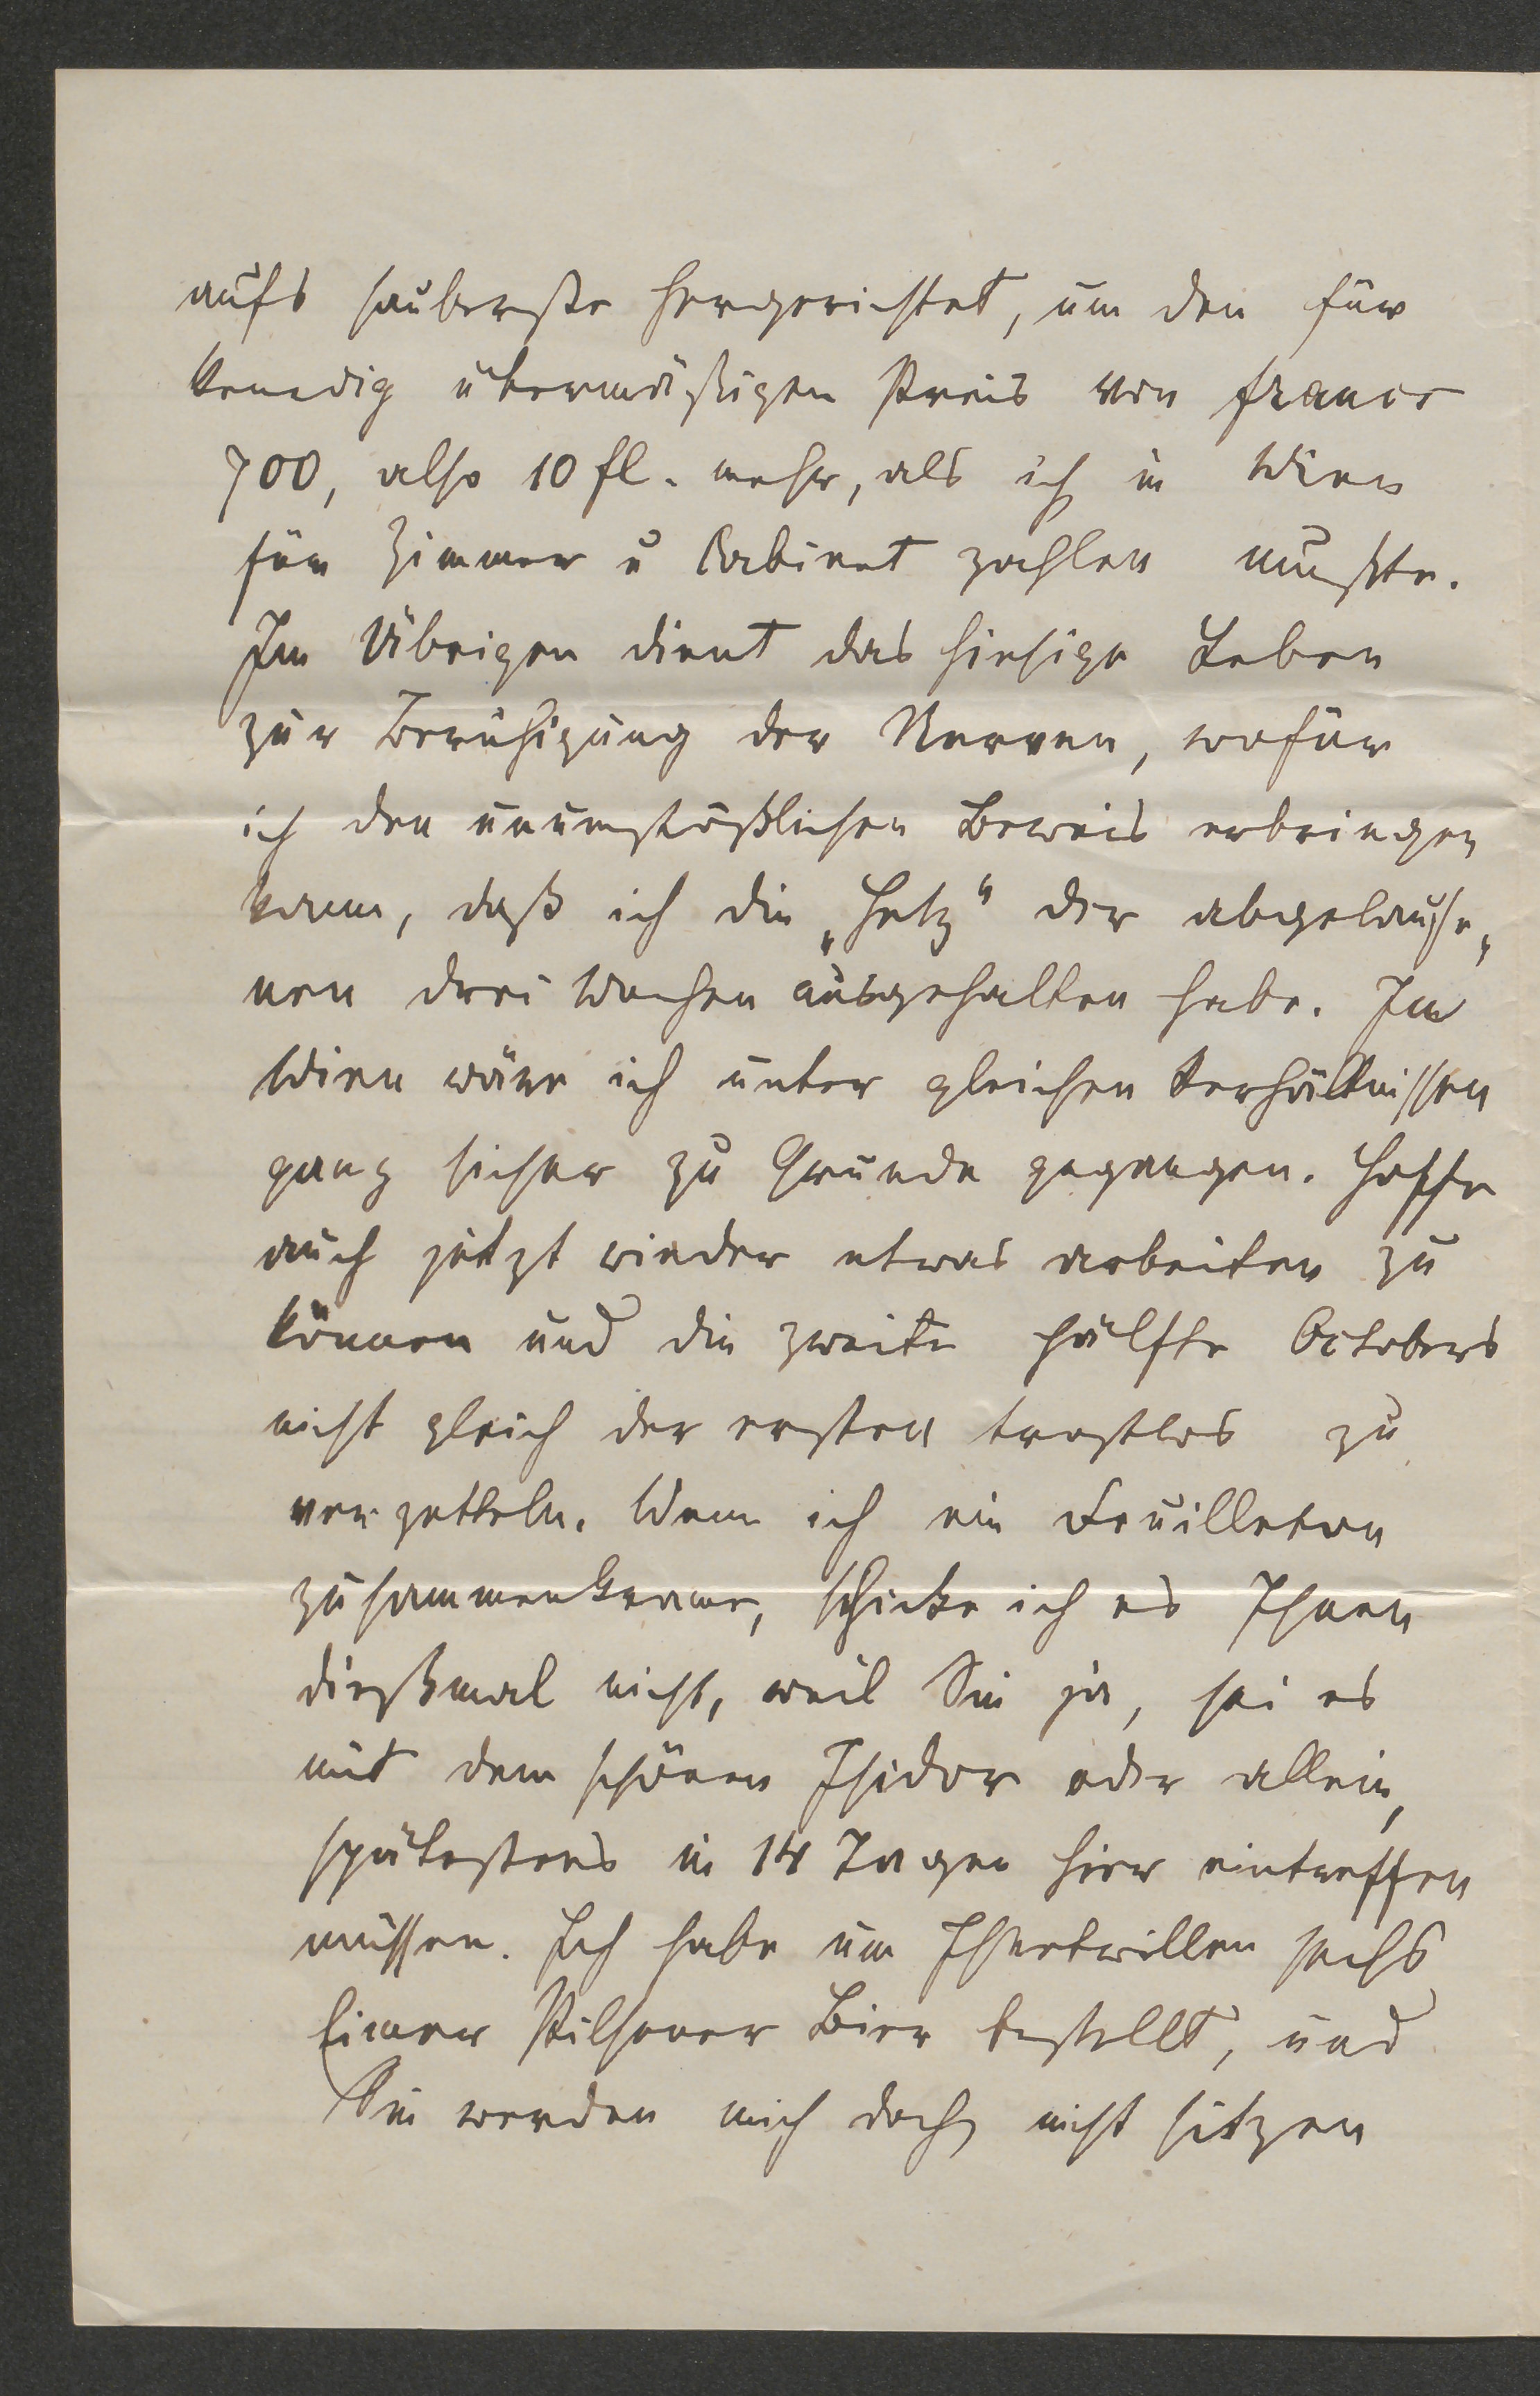 aufs sauberste hergerichtet, um den für
Venedig übermäßigen Preis von francs
700, also 10 fl. mehr, als ich in Wien
für Zimmer u Cabinet zahlen mußte.
Im Übrigen dient das hiesige Leben
zur Beruhigung der Nerven, wofür
ich den unumstößlichen Beweis erbringen
kann, daß ich die „Hetz“ der abgelaufe„
nen drei Wochen ausgehalten habe. In
Wien wäre ich unter gleichen Verhältnissen
ganz sicher zu Grunde gegangen. Hoffe
auch jetzt wieder etwas arbeiten zu
können und die zweite Hälfte Octobers
nicht gleich der ersten trostlos zu
verzetteln. Wenn ich ein Feuilleton
zusammenkrame, schicke ich es Ihnen
dießmal nicht, weil Sie ja, sei es
mit dem schönen Isidor oder allein,
spätestens in 14 Tagen hier eintreffen
müssen. Ich habe um Ihretwillen sechs
Eimer Pilsener Bier bestellt, und
Sie werden mich doch nicht sitzen